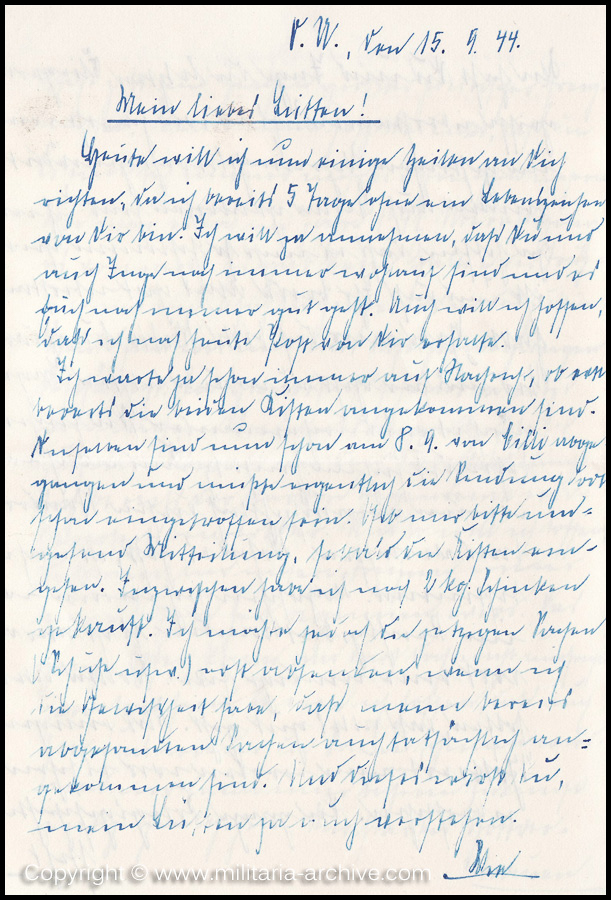 O. U., den 15. 9. 44.
Mein liebes
Heute will ich nun einige Zeilen an Dich
richten, da ich bereits 5 Tage ohne ein Lebenszeichen
von Dir bin. Ich will ja annehmen, daß Du und
auch Inge noch immer wohlauf sind und es
Euch noch immer gut geht. Auch will ich hoffen,
daß ich noch heute Post von Dir erhalte.
Ich warte ja schon immer auf Nachricht, ob
bereits die beiden Kisten angekommen sind.
Dieselben sind nun schon am 8. 9. von Cilli abge
gangen und müßte eigentlich die Sendung dort
schon eingetroffen sein. Gib mir bitte um=
gehend Mitteilung, sobald die Kisten ein=
gehen. Inzwischen habe ich noch 2 kg. Schinken
gekauft. Ich möchte jedoch die jetzigen Sachen
(Schuhe usw.) erst absenden, wenn ich
die Gewißheit habe, daß meine bereits
abgesandten Sachen auch tatsächlich an=
gekommen sind. Und dieses wirst Du,
mein ja auch verstehen.
Wie
Copyright © www.militaria-archive.com